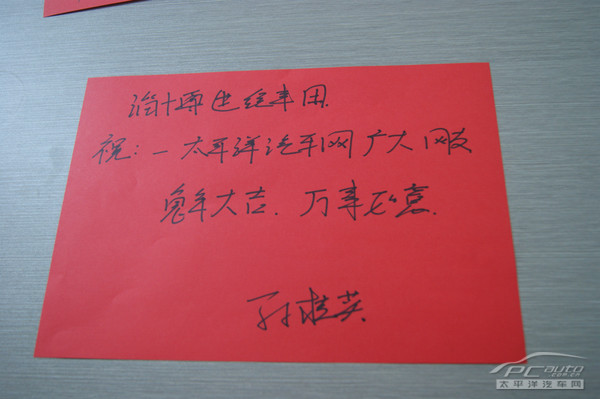 淄博连经车田
祝:一太平洋汽车网广大网友
兔年大吉.万事如意.
孙桂英
PCauto
.com.cn
太平洋汽车网